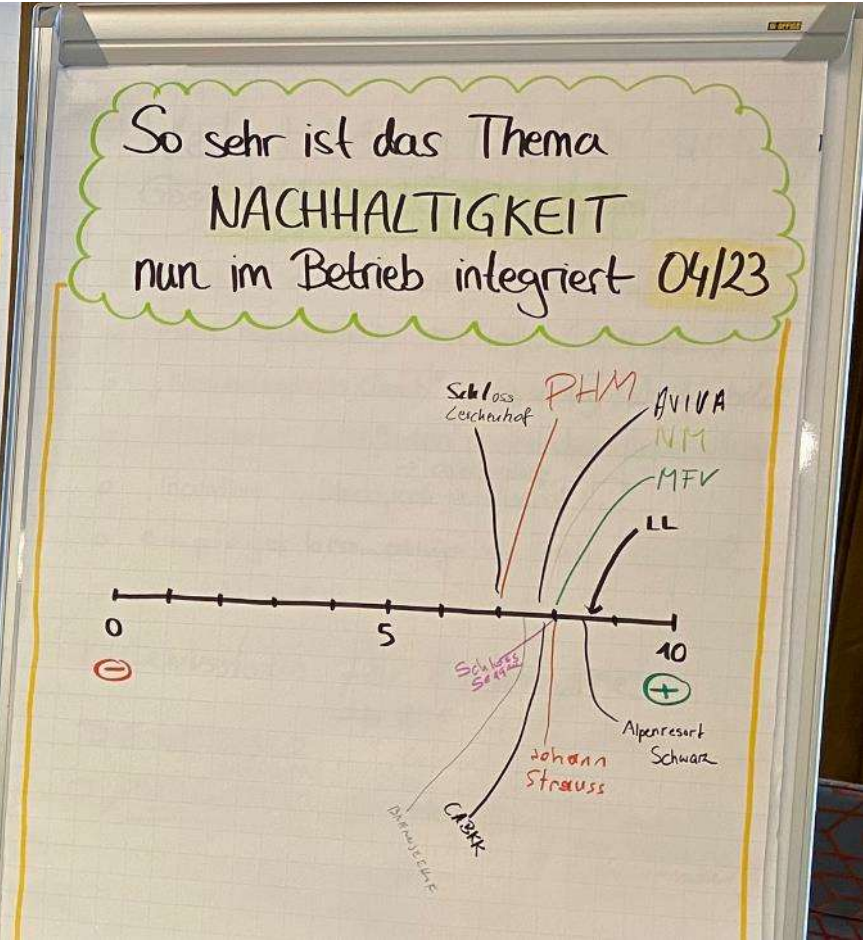 So sehr ist das Thema
NACHHALTIGKEIT
nun im Betrieb integriert 04/23
Schloss
Lerchenhof
PHM
AVIVA
NM
MFV
LL
0
5
10
Schloss
Alpenresort
Schwarz
Johann
Strauss
CABKK